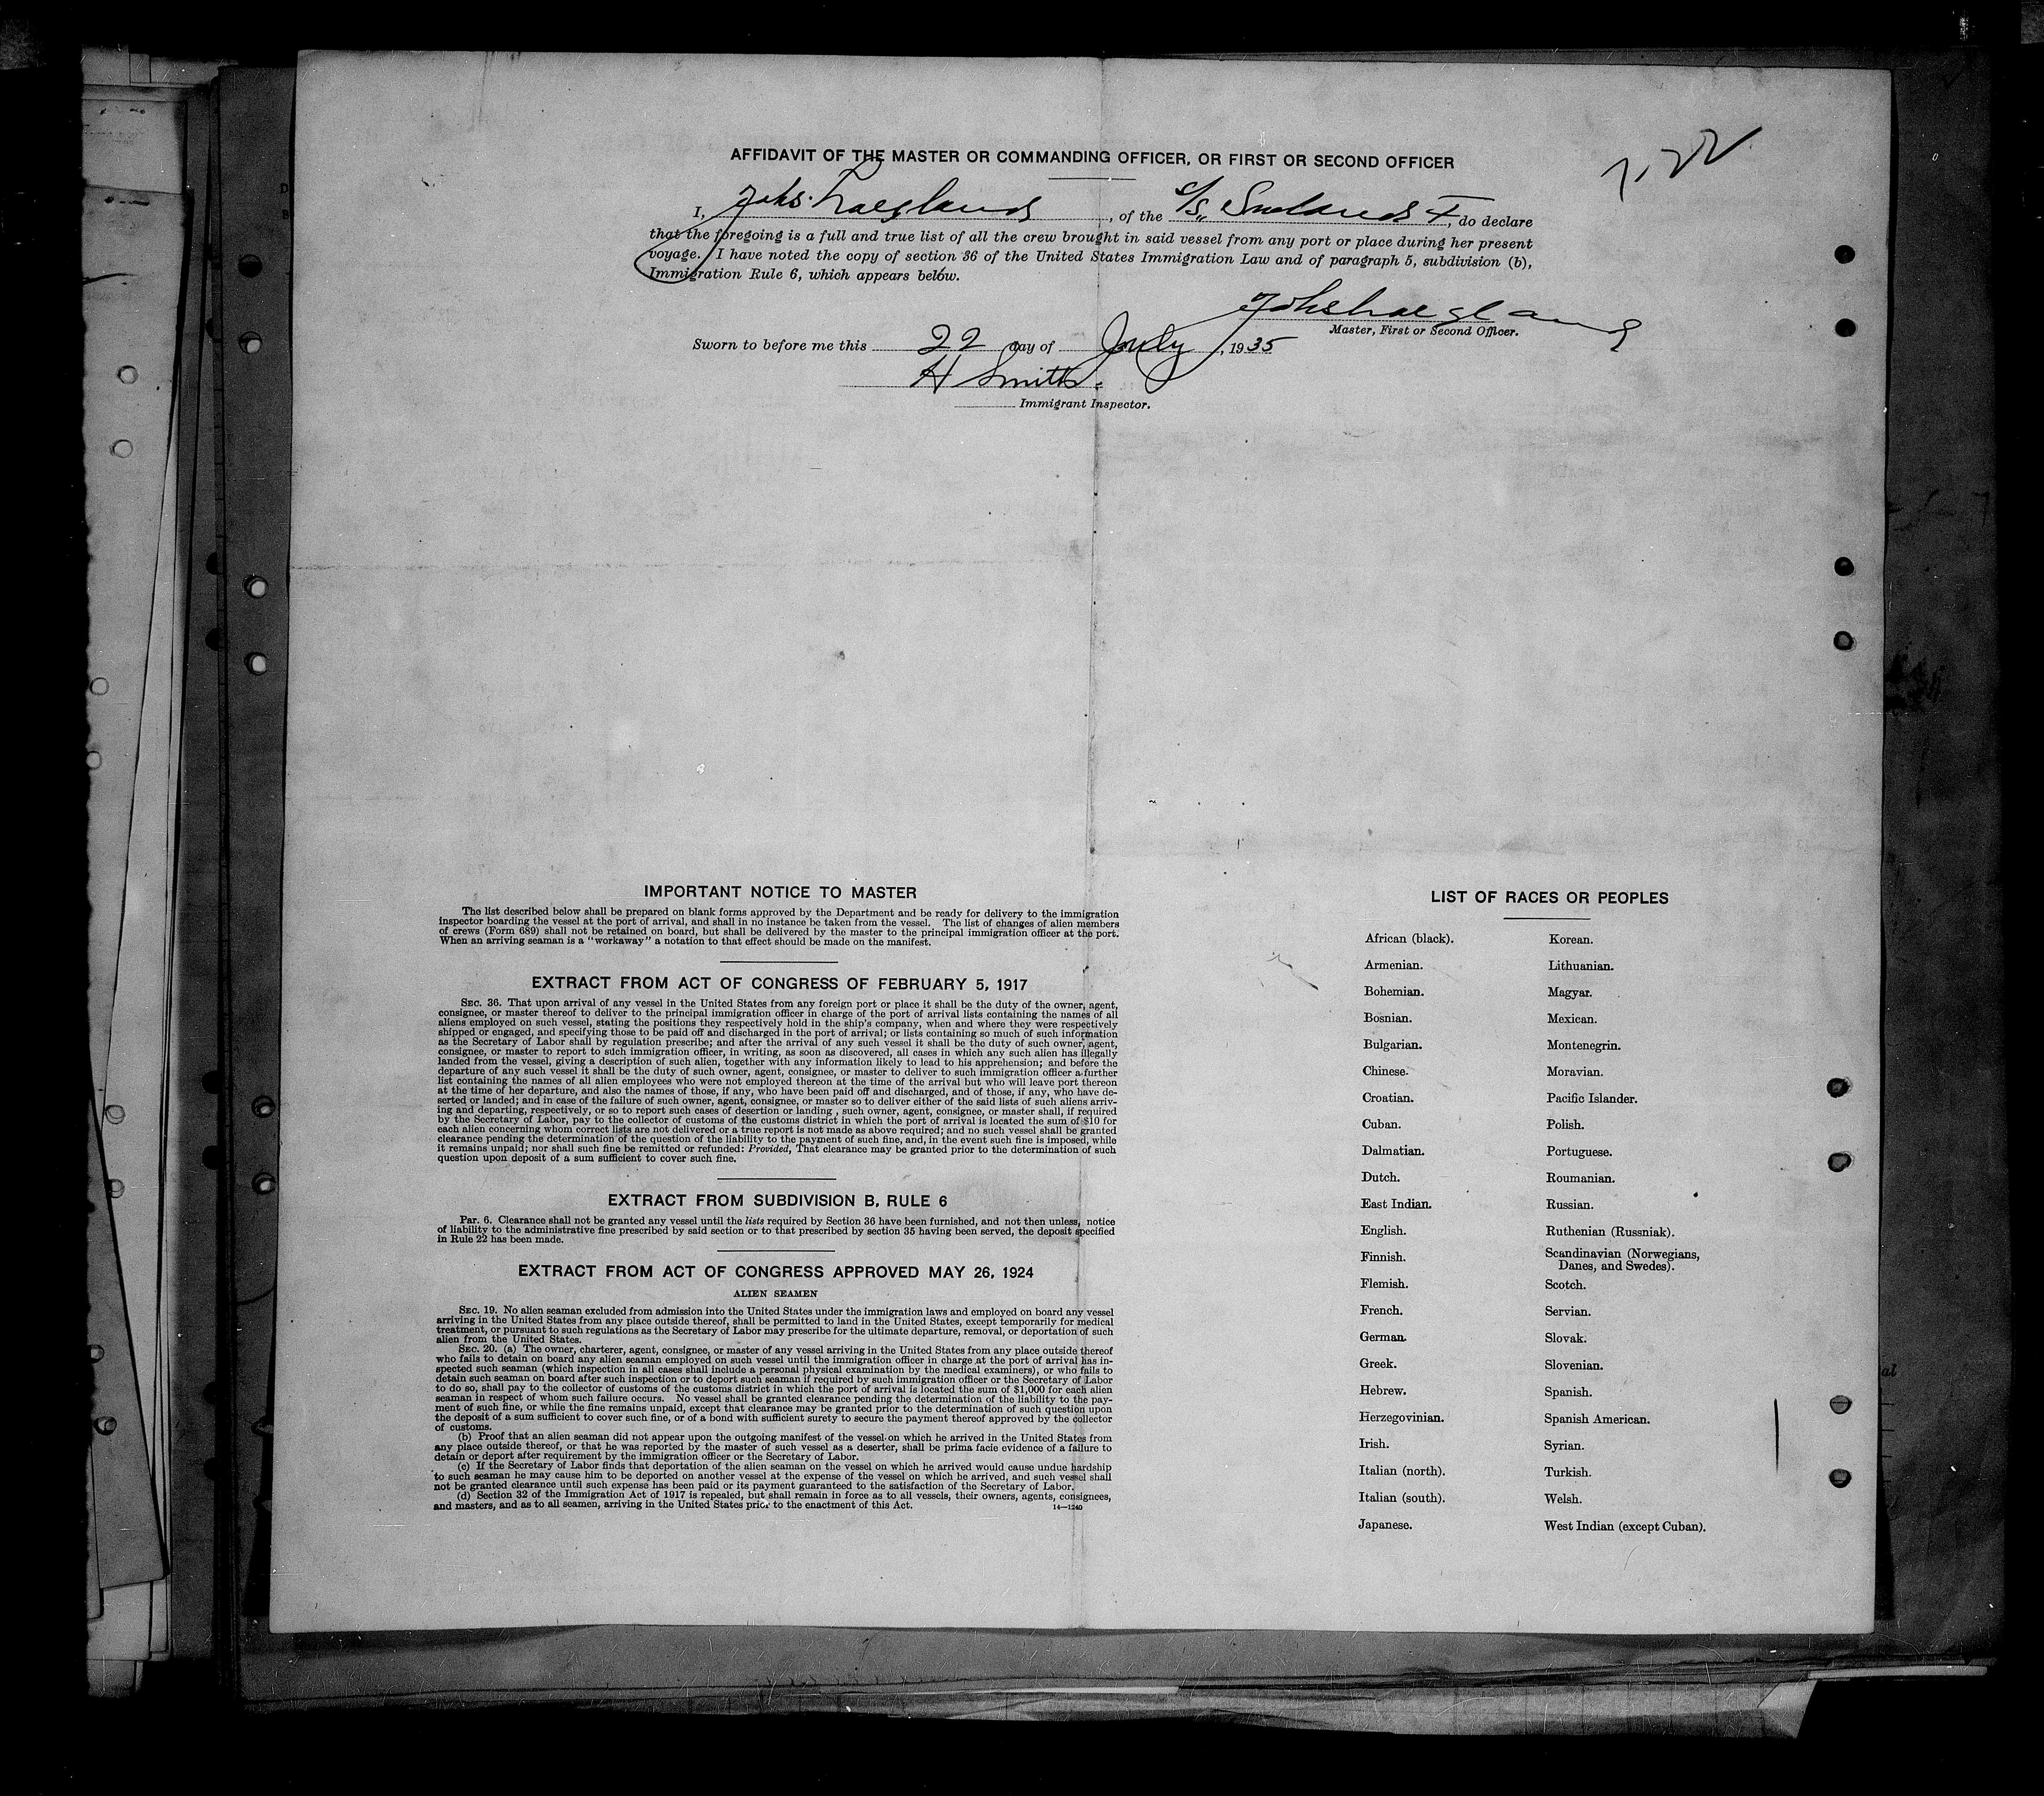 AFFIDAVIT OF THE MASTER OR COMMANDING OFFICER, OR FIRST OR SECOND OFFICER
I, Johs. , of the S/S , do declare
that the foregoing is a full and true list of all the crew brought in said vessel from any port or place during her present
voyage. I have noted the copy of section 36 of the United States Immigration Law and of paragraph 5, subdivision (b),
Immigration Rule 6, which appears below.
Master, First or Second Officer.
Sworn to before me this 22 day of July, 1935
H Smith.
Immigrant Inspector.
IMPORTANT NOTICE TO MASTER
The list described below shall be prepared on blank forms approved by the Department and be ready for delivery to the immigration
inspector boarding the vessel at the port of arrival, and shall in no instance be taken from the vessel. The list of changes of alien members
of crews (Form 689) shall not be retained on board, but shall be delivered by the master to the principal immigration officer at the port.
When an arriving seaman is a "workaway" a notation to that effect should be made on the manifest.
EXTRACT FROM ACT OF CONGRESS OF FEBRUARY 5, 1917
SEC. 36. That upon arrival of any vessel in the United States from any foreign port or place it shall be the duty of the owner, agent,
consignee, or master thereof to deliver to the principal immigration officer in charge of the port of arrival lists containing the names of all
aliens employed on such vessel, stating the positions they respectively hold in the ship's company, when and where they were respectively
shipped or engaged, and specifying those to be paid off and discharged in the port of arrival; or lists containing so much of such information
as the Secretary of Labor shall by regulation prescribe; and after the arrival of any such vessel it shall be the duty of such owner, agent,
consignee, or master to report to such immigration officer, in writing, as soon as discovered, all cases in which any such alien has illegally
landed from the vessel, giving a description of such alien, together with any information likely to lead to his apprehension; and before the
departure of any such vessel it shall be the duty of such owner, agent, consignee, or master to deliver to such immigration officer a further
list containing the names of all alien employees who were not employed thereon at the time of the arrival but who will leave port thereon
at the time of her departure, and also the names of those, if any, who have been paid off and discharged, and of those, if any, who have de-
serted or landed; and in case of the failure of such owner, agent, consignee, or master so to deliver either of the said lists of such aliens arriv-
ing and departing, respectively, or so to report such cases of desertion or landing, such owner, agent, consignee, or master shall, if required
by the Secretary of Labor, pay to the collector of customs of the customs district in which the port of arrival is located the sum of $10 for
each alien concerning whom correct lists are not delivered or a true report is not made as above required; and no such vessel shall be granted
clearance pending the determination of the question of the liability to the payment of such fine, and, in the event such fine is imposed, while
it remains unpaid; nor shall such fine be remitted or refunded: Provided, That clearance may be granted prior to the determination of such
question upon deposit of a sum sufficient to cover such fine.
EXTRACT FROM SUBDIVISION B, RULE 6
Par. 6. Clearance shall not be granted any vessel until the lists required by Section 36 have been furnished, and not then unless, notice
of liability to the administrative fine prescribed by said section or to that prescribed by section 35 having been served, the deposit specified
in Rule 22 has been made.
EXTRACT FROM ACT OF CONGRESS APPROVED MAY 26, 1924
ALIEN SEAMEN
SEC. 19. No alien seaman excluded from admission into the United States under the immigration laws and employed on board any vessel
arriving in the United States from any place outside thereof, shall be permitted to land in the United States, except temporarily for medical
treatment, or pursuant to such regulations as the Secretary of Labor may prescribe for the ultimate departure, removal, or deportation of such
alien from the United States.
SEC. 20. (a) The owner, charterer, agent, consignee, or master of any vessel arriving in the United States from any place outside thereof
who fails to detain on board any alien seaman employed on such vessel until the immigration officer in charge at the port of arrival has in-
spected such seaman (which inspection in all cases shall include a personal physical examination by the medical examiners), or who fails to
detain such seaman on board after such inspection or to deport such seaman if required by such immigration officer or the Secretary of Labor
to do so, shall pay to the collector of customs of the customs district in which the port of arrival is located the sum of $1,000 for each alien
seaman in respect of whom such failure occurs. No vessel shall be granted clearance pending the determination of the liability to the pay-
ment of such fine, or while the fine remains unpaid, except that clearance may be granted prior to the determination of such question upon
the deposit of a sum sufficient to cover such fine, or of a bond with sufficient surety to secure the payment thereof approved by the collector
of customs.
(b) Proof that an alien seaman did not appear upon the outgoing manifest of the vessel on which he arrived in the United States from
any place outside thereof, or that he was reported by the master of such vessel as a deserter, shall be prima facie evidence of a failure to
detain or deport after requirement by the immigration officer or the Secretary of Labor.
(c) If the Secretary of Labor finds that deportation of the alien seaman on the vessel on which he arrived would cause undue hardship
to such seaman he may cause him to be deported on another vessel at the expense of the vessel on which he arrived, and such vessel shall
not be granted clearance until such expense has been paid or its payment guaranteed to the satisfaction of the Secretary of Labor.
(d) Section 32 of the Immigration Act of 1917 is repealed, but shall remain in force as to all vessels, their owners, agents, consignees,
and masters, and as to all seamen, arriving in the United States prior to the enactment of this Act.
14—1240
LIST OF RACES OR PEOPLES
African (black).
Armenian.
Bohemian.
Bosnian.
Bulgarian.
Chinese.
Croatian.
Cuban.
Dalmatian.
Dutch.
East Indian.
English.
Finnish.
Flemish.
French.
German.
Greek.
Hebrew.
Herzegovinian.
Irish.
Italian (north).
Italian (south).
Japanese.
Korean.
Lithuanian.
Magyar.
Mexican.
Montenegrin.
Moravian.
Pacific Islander.
Polish.
Portuguese.
Roumanian.
Russian.
Ruthenian (Russniak).
Scandinavian (Norwegians,
Danes, and Swedes).
Scotch.
Servian.
Slovak.
Slovenian.
Spanish.
Spanish American.
Syrian.
Turkish.
Welsh.
West Indian (except Cuban).